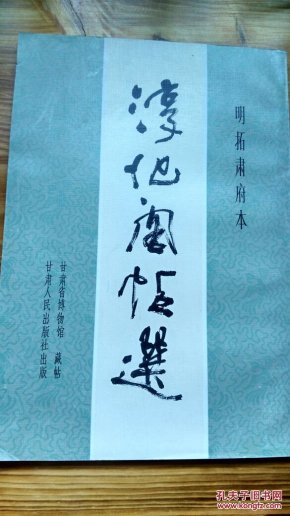 明拓肃府本
淳化阁帖選
甘肃省博物馆 藏帖
甘肃人民出版社出版
孔夫子旧书网